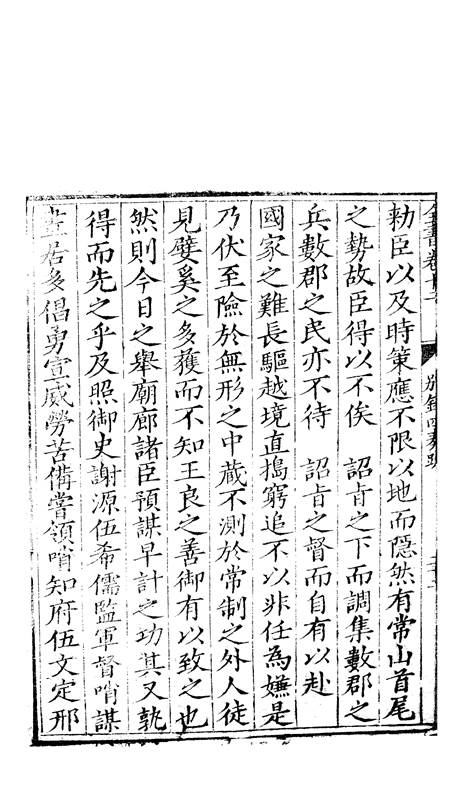 全書卷十二 別錄四奏疏
勅臣以及時策應不限以地而隱然有常山首尾
之勢故臣得以不俟 詔㫖之下而調集數郡之
兵數郡之民亦不待 詔㫖之督而自有以赴
國家之難長驅越境直搗窮追不以非任為嫌是
乃伏至險於無形之中藏不測於常制之外人徒
見嬖奚之多獲而不知王良之善御有以致之也
然則今日之舉廟廊諸臣預謀早計之功其又孰
得而先之乎及照御史謝源伍希儒監軍督哨謀
畫居多倡勇宣威勞苦備嘗領哨知府伍文定邢